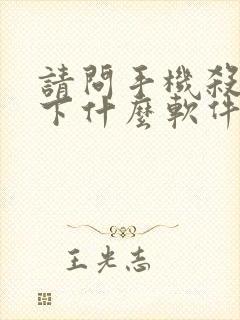 請問手機殺
下什麼軟件
王光志